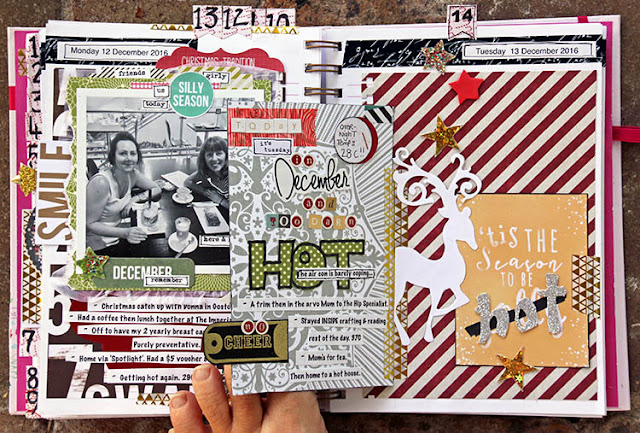 13 12 10
14
Monday 12 December 2016
Tuesday 13 December 2016
CHRISTMAS TRADITION
friends
girly
us
today
SILLY
SEASON
SMILE
DECEMBER
remember
here &
Christmas catch up with Donna in
Had a coffee then lunch together at The
Off to have my 2 yearly breast
Purely preventative.
Home via 'Spotlight'. Had a $5 voucher
Getting hot again.
TODAY
it's tuesday
OVER-
NIGHT
TEMP
28c!!
in
December
and
TOO DARN
HOT
The air con is barely coping...
A trim then in the arvo Mom to the Hip Specialist.
Stayed INSIDE crafting & reading
rest of the day.
Mom's for tea.
Then home to a hot house.
NO
CHEER
'tis THE
Season
TO BE
hot
7
8